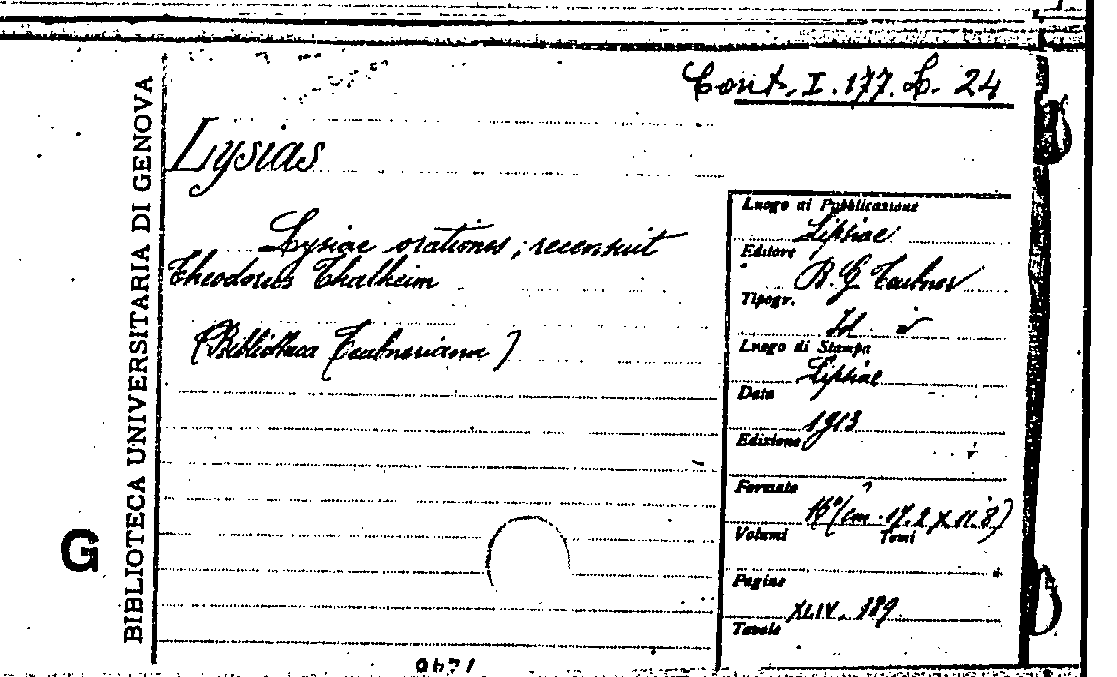 Cont. I. 177. L. 24
Lysias
Lysiae orationes; recensuit
Theodorus Thalheim
(Bibliotheca Teubneriana)
Luogo di Pubblicazione
Lipsiae
Editore
B. G. Teubner
Tipogr.
Id.
Luogo di Stampa
Lipsiae
Data
1913
Edizione
Formato
16º (cm. 17.2 X 11.8)
Volumi Tomi
Pagine
XLIV.
Tavole
BIBLIOTECA UNIVERSITARIA DI GENOVA
G